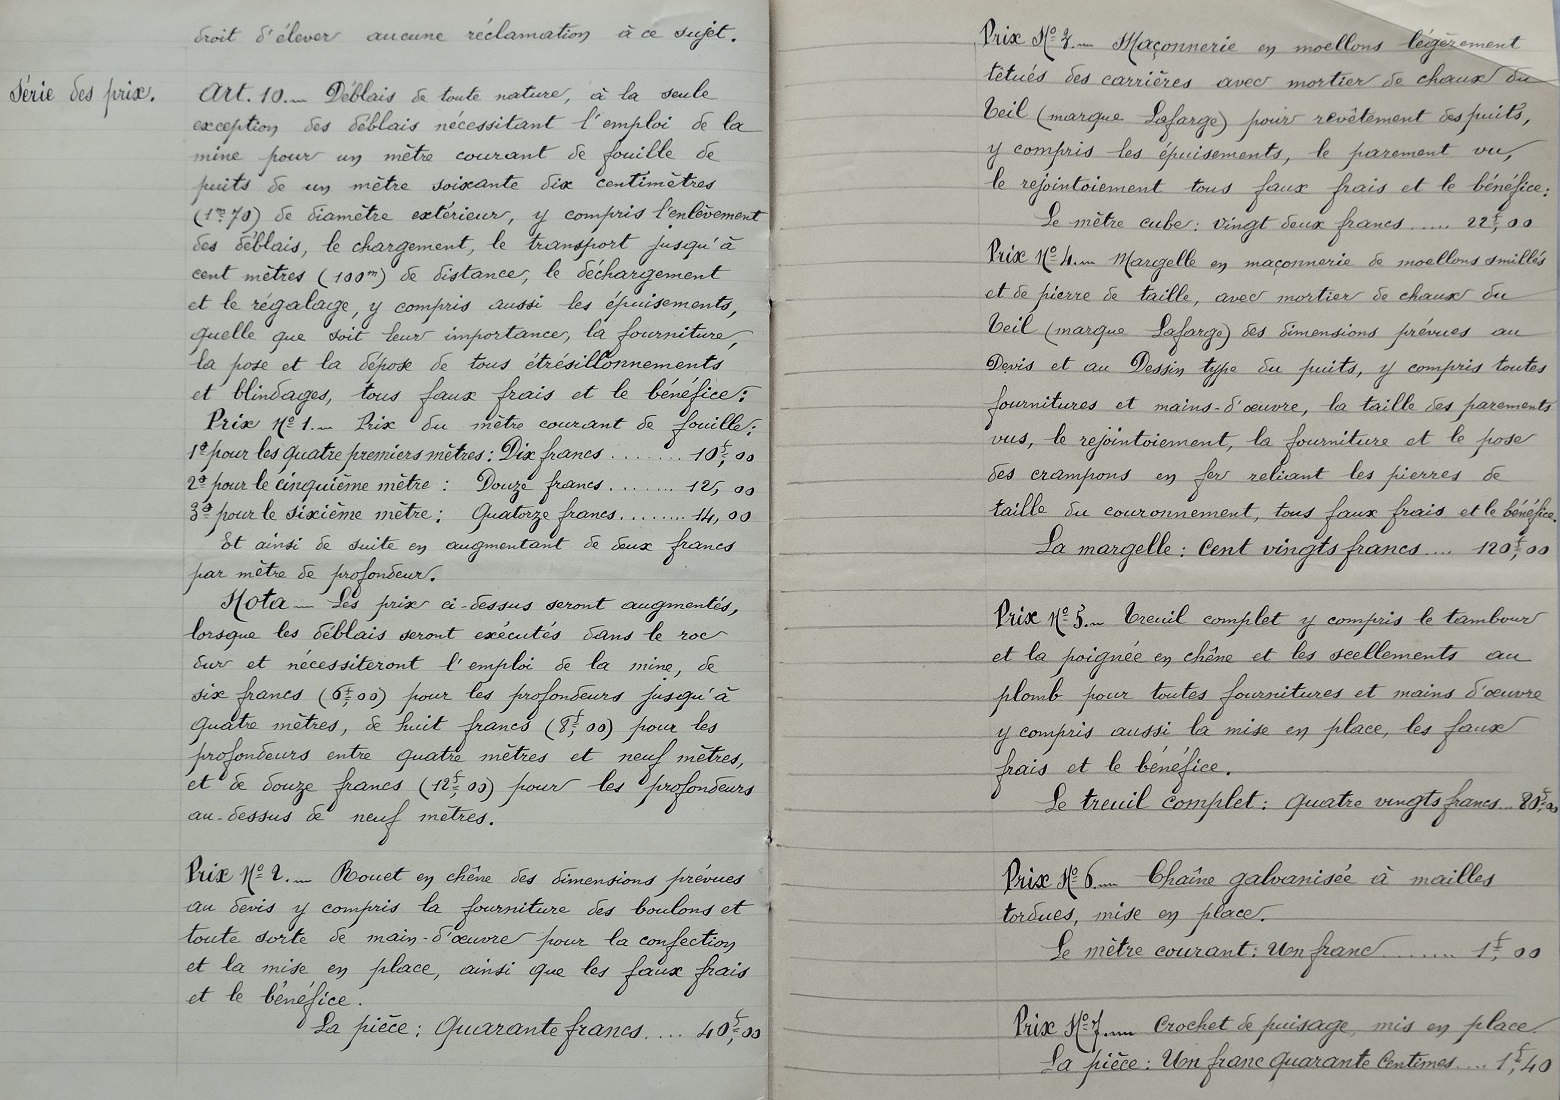 droit d'élever aucune réclamation à ce sujet.
Série des prix.
Art. 10.— Déblais de toute nature, à la seule
exception des déblais nécessitant l'emploi de la
mine pour un mètre courant de fouille de
puits de un mètre soixante dix centimètres
(1m70) de diamètre extérieur, y compris l'enlèvement
des déblais, le chargement, le transport jusqu'à
cent mètres (100m) de distance, le déchargement
et le régalage, y compris aussi les épuisements,
quelle que soit leur importance, la fourniture,
la pose et la dépose de tous étrésillonnements
et blindages, tous faux frais et le bénéfice:
Prix No 1.— Prix du mètre courant de fouille:
1o pour les quatre premiers mètres: Dix francs ........ 10f,00
2o pour le cinquième mètre : Douze francs ........ 12, 00
3o pour le sixième mètre: Quatorze francs ........ 14, 00
Et ainsi de suite en augmentant de deux francs
par mètre de profondeur.
Nota — Les prix ci-dessus seront augmentés,
lorsque les déblais seront exécutés dans le roc
dur et nécessiteront l'emploi de la mine, de
six francs (6f,00) pour les profondeurs jusqu'à
quatre mètres, de huit francs (8f,00) pour les
profondeurs entre quatre mètres et neuf mètres,
et de douze francs (12f,00) pour les profondeurs
au-dessus de neuf mètres.
Prix No 2.— Rouet en chêne des dimensions prévues
au devis y compris la fourniture des boulons et
toute sorte de main-d'œuvre pour la confection
et la mise en place, ainsi que les faux frais
et le bénéfice.
La pièce : Quarante francs .... 40f,00
Prix No 3.— Maçonnerie en moellons légèrement
têtués des carrières avec mortier de chaux du
Teil (marque Lafarge) pour revêtement des puits,
y compris les épuisements, le parement vu,
le rejointoiement tous faux frais et le bénéfice:
Le mètre cube: vingt deux francs ..... 22f,00
Prix No 4.— Margelle en maçonnerie de moellons smillés
et de pierre de taille, avec mortier de chaux du
Teil (marque Lafarge) des dimensions prévues au
Devis et au Dessin type du puits, y compris toutes
fournitures et mains-d'œuvre, la taille des parements
vus, le rejointoiement, la fourniture et le pose
des crampons en fer reliant les pierres de
taille du couronnement, tous faux frais et le bénéfice.
La margelle : Cent vingts francs .... 120f,00
Prix No 5.— Treuil complet y compris le tambour
et la poignée en chêne et les scellements au
plomb pour toutes fournitures et mains d'œuvre
y compris aussi la mise en place, les faux
frais et le bénéfice.
Le treuil complet : quatre vingts francs .. 80f,00
Prix No 6.— Chaîne galvanisée à mailles
tordues, mise en place.
Le mètre courant: Un franc ........ 1f,00
Prix No 7.— Crochet de puisage, mis en place.
La pièce : Un franc quarante Centimes .... 1f,40